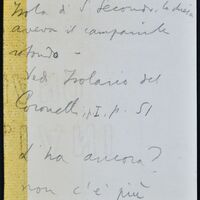 Isola di S. Secondo, la chiesa
aveva il campanile
rotondo -
Ved. Isolario del
Coronelli, p I, p. 51
L'ha ancora?
non c'è più